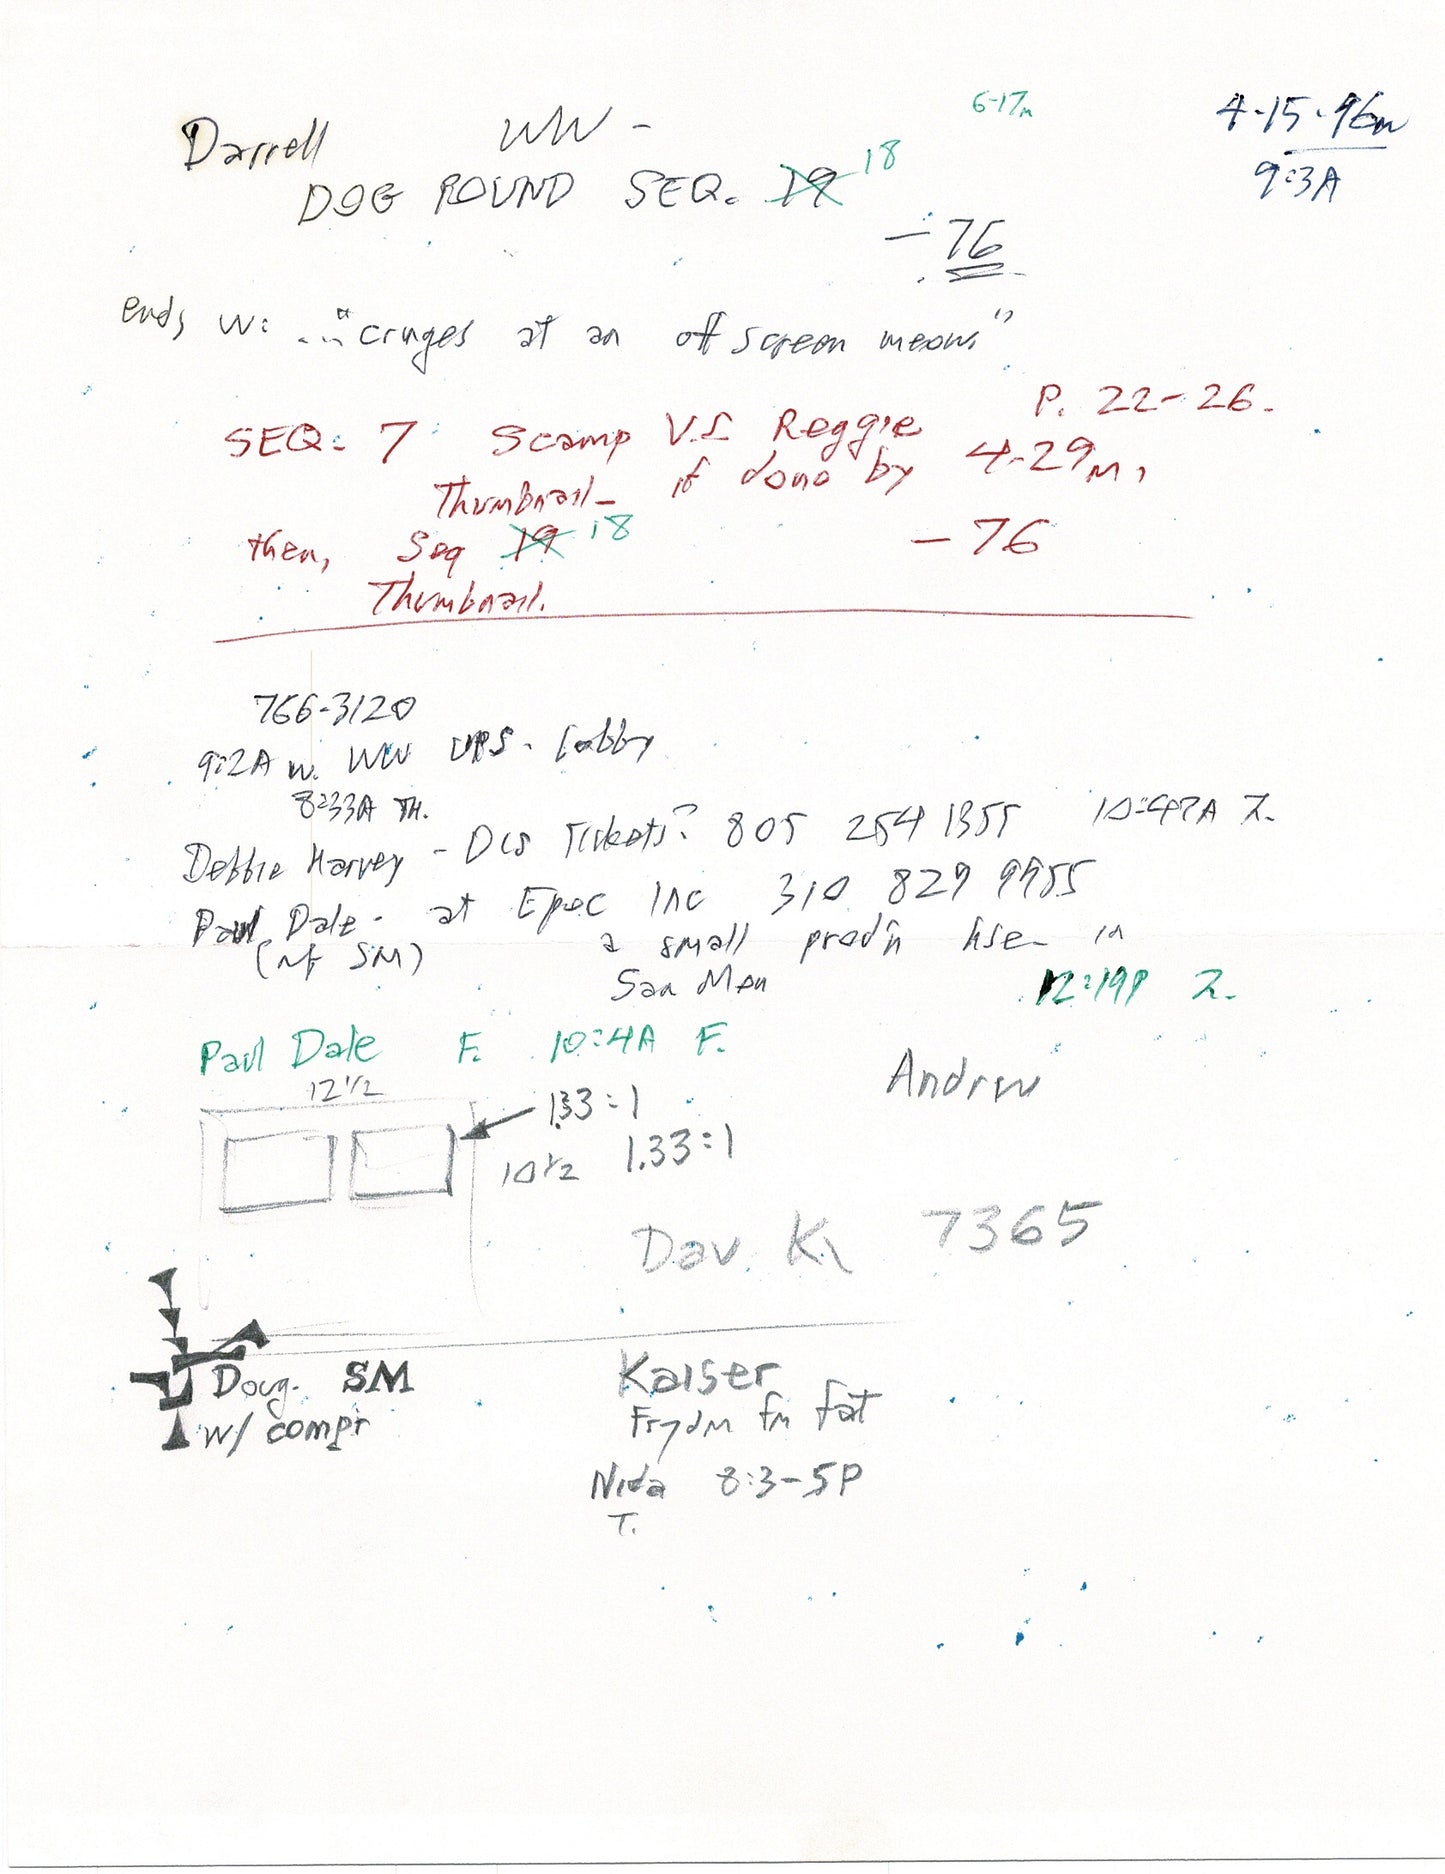 6-17m
4-15-96m
9:3A
Darrell WW -
DOG POUND SEQ. 19 18
- 76
ends w: ..."cringes at an off screen meow."
P. 22-26.
SEQ. 7 Scamp VS Reggie
Thumbnail - if done by 4-29m,
then, Seq 19 18 - 76
Thumbnail.
766-3120
9:2A w. WW UPS - Lobby
8:33A TH.
Debbie Harvey - Tickets? 805 254 1355 10:47A Z.
Paul Dale - at Inc 310 829 9955
(nf SM) a small prod'n hse in
San Mon
12:19P Z.
Paul Dale F. 10:4A F.
12 1/2
1.33:1
Andrw
10 1/2 1.33:1
Dav. K. 7365
Doug. SM
w/ compr
Kaiser
fm fat
Nida 8:3-5P
T.